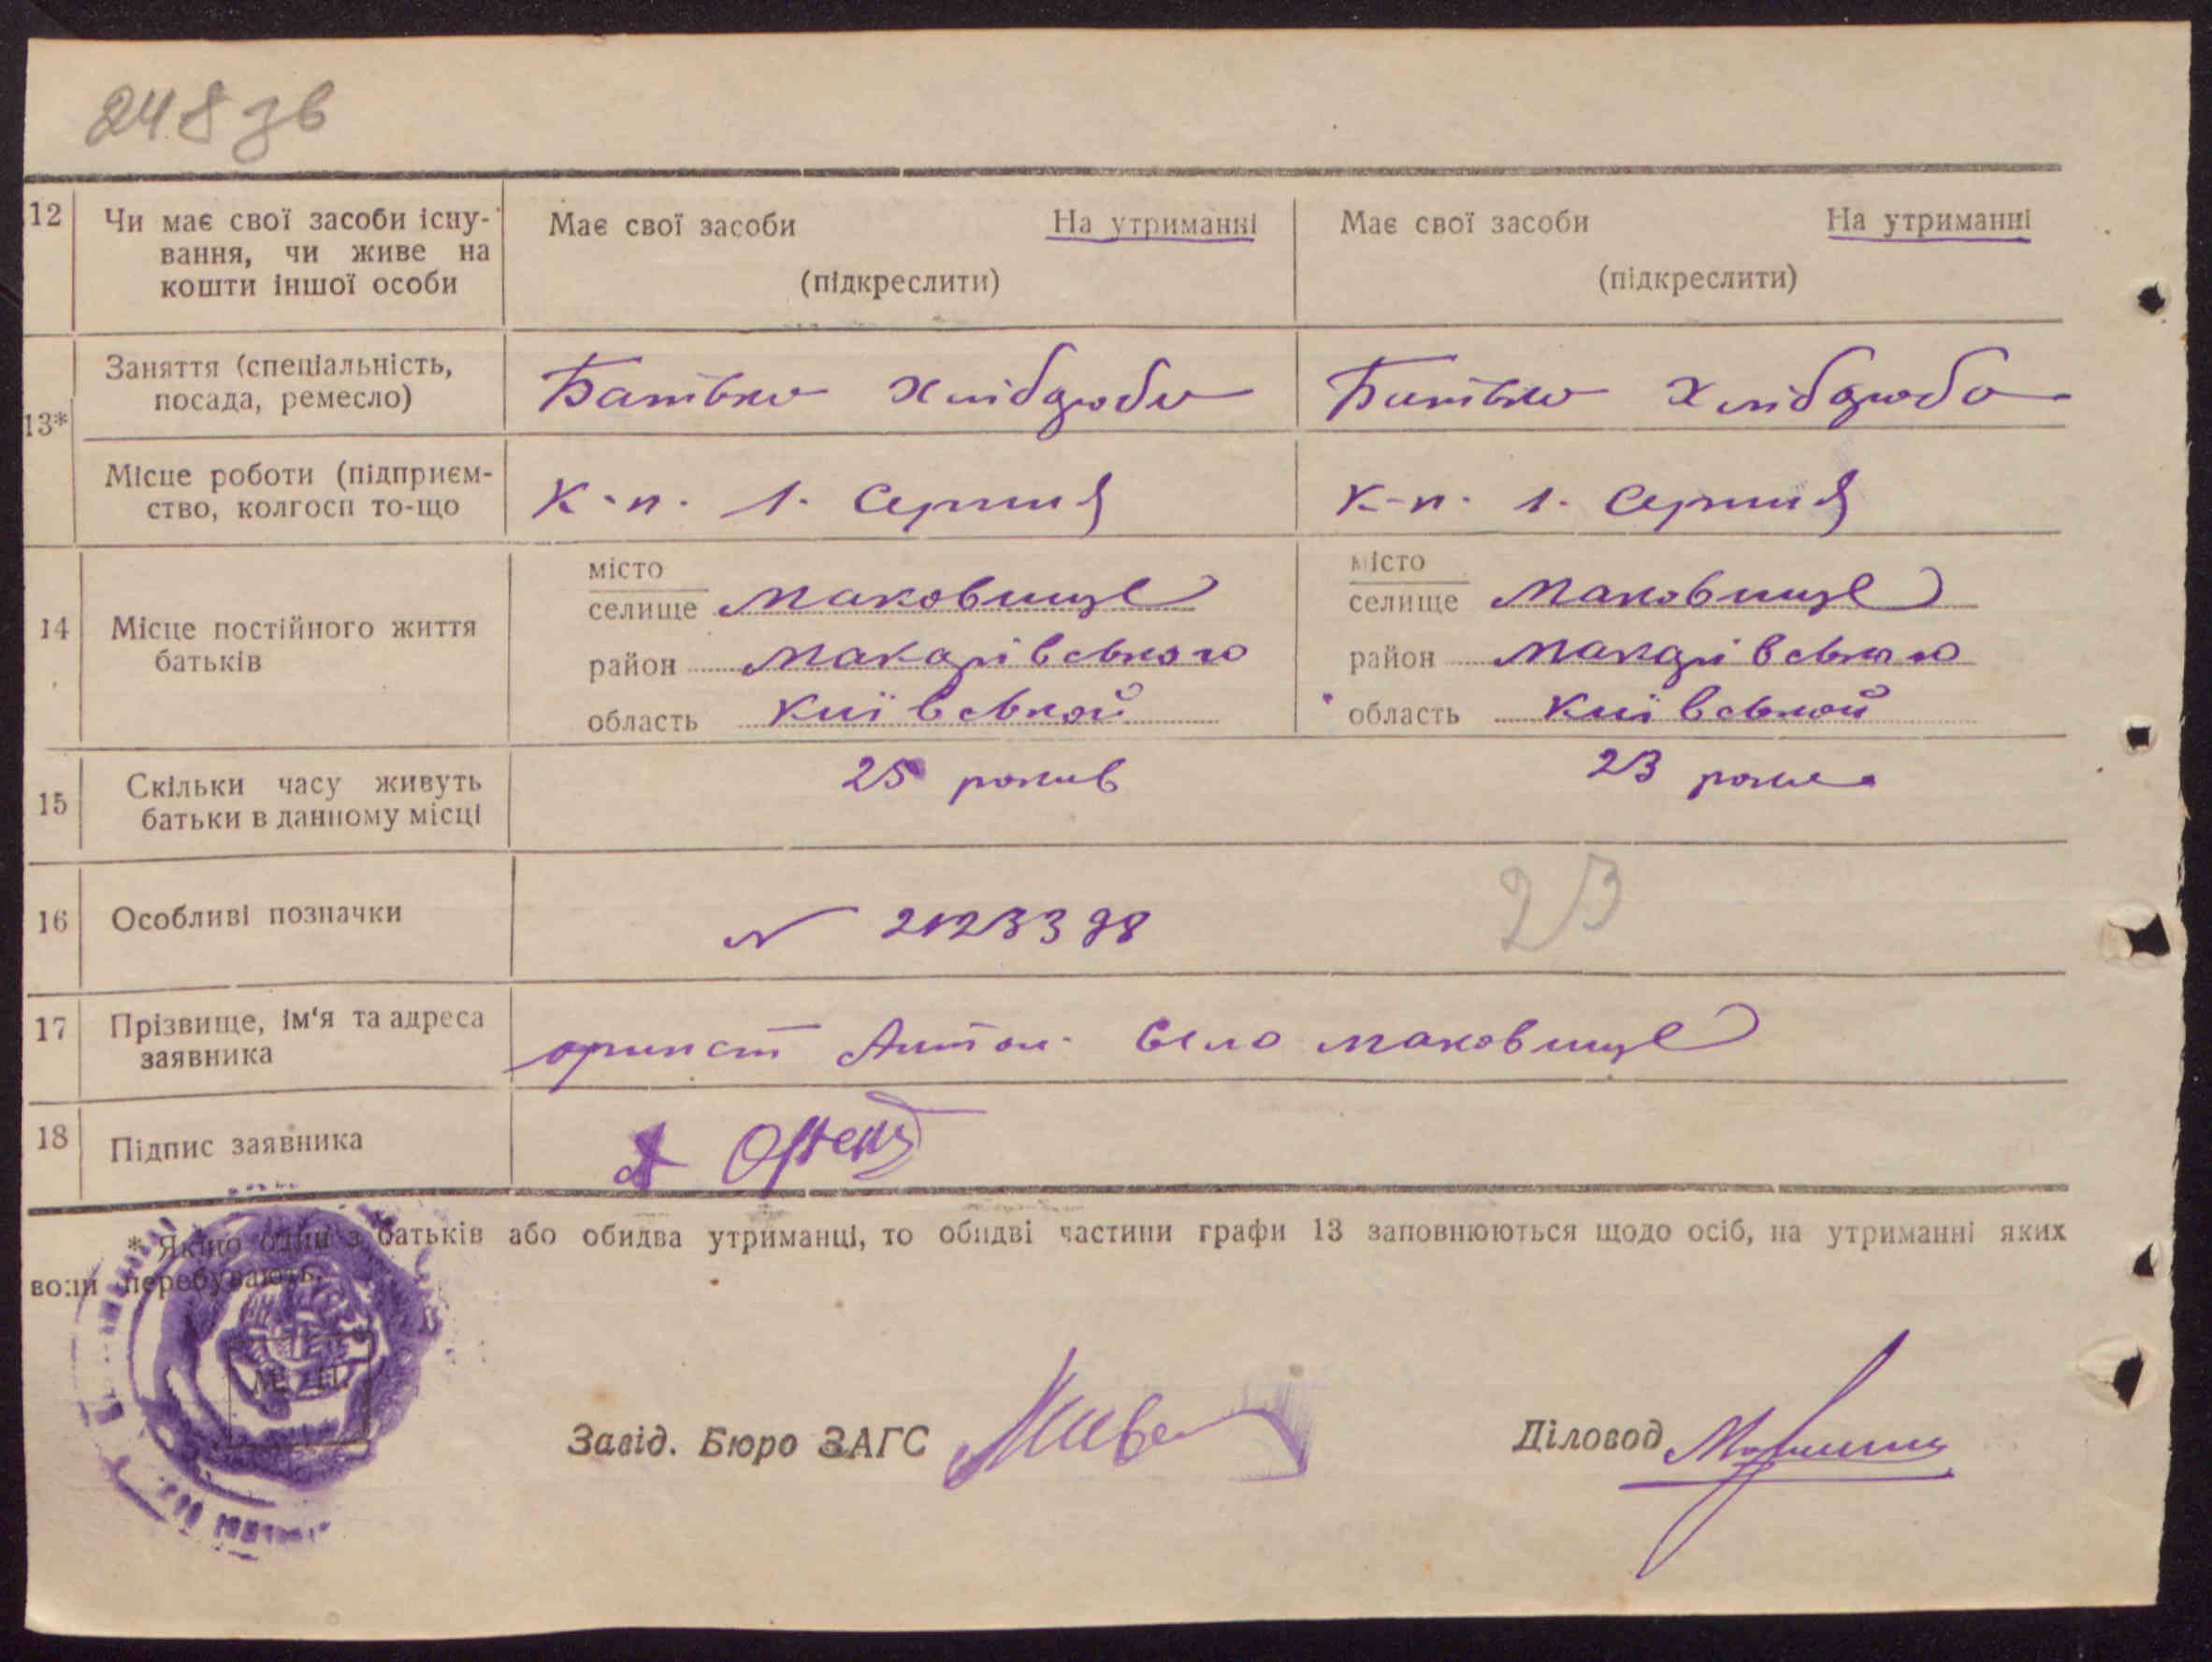 248 зв
12 Чи має свої засоби існу- Має свої засоби На утриманні Має свої засоби На утриманні
вання, чи живе на
кошти іншої особи (підкреслити) (підкреслити)
13* Заняття (спеціальність, Батько хлібороб Батько хлібороб
посада, ремесло)
Місце роботи (підприєм- К-п. 1. Серпня К-п. 1. Серпня
ство, колгосп то-що
14 Місце постійного життя
батьків
місто
селище Маковище
район Макарівського
область Київської
місто
селище Маковище
район Макарівського
область Київської
15 Скільки часу живуть 25 років 23 роки
батьки в данному місці
16 Особливі позначки N 2123398 23
17 Прізвище, ім'я та адреса Антон село Маковище
заявника
18 Підпис заявника А
* Якщо один з батьків або обидва утриманці, то обидві частини графи 13 заповнюються щодо осіб, на утриманні яких
вони перебувають.
М. П.
Завід. Бюро ЗАГС Діловод